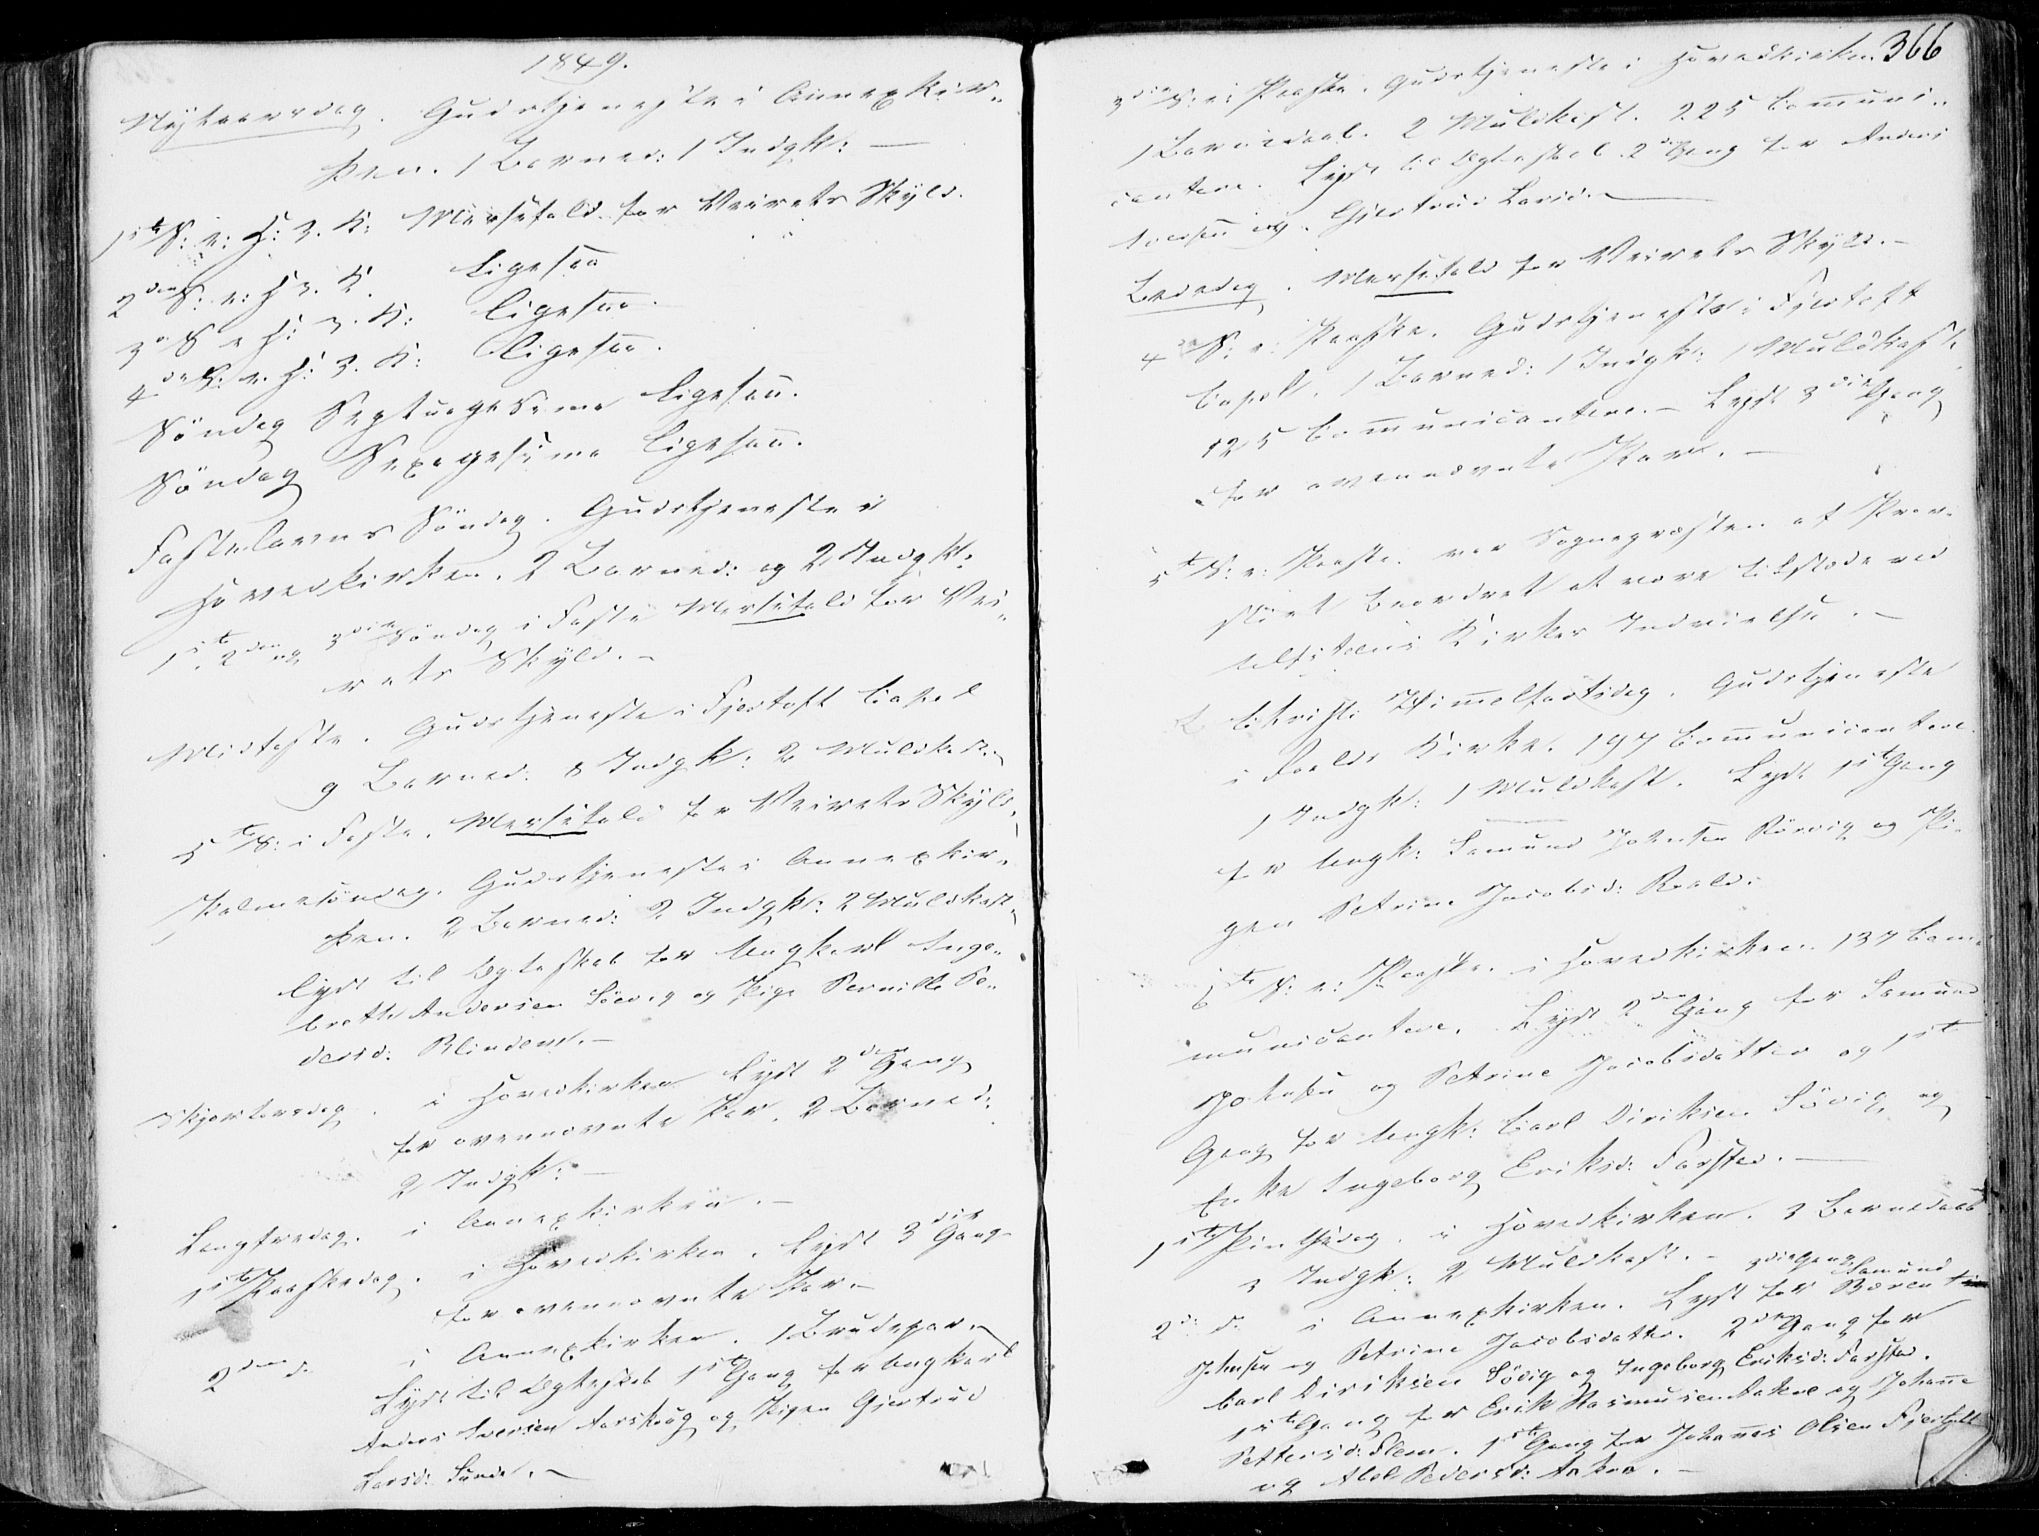 1849.
Nytaarsdag. Gudstjeneste i Annexkir-
ken. 1 Barned: 1 Indgk: —
1ste S: e: H: 3. K: Messefald for Veirets Skyld.
2den S: e: H 3. K. ligesaa
3die S e H: 3. K: ligesaa.
4de S: e. H: 3. K: ligesaa.
Söndag Septuagesima ligesaa.
Söndag Sexagesima ligesaa.
Fastelavns Söndag. Gudstjeneste i
Hovedkirken. 2 Barned: og 2 Indgk:
1ste, 2den og 3die Söndag i Faste Messefald for Vei-
rets Skyld. —
Midfaste. Gudstjeneste i Fjörtoft Capel
9 Barned. 8 Indgk: 2 Muldkast.
5te S: i Faste. Messefald for Veirets Skyld.
Palmesöndag. Gudstjeneste i Annexkir-
ken. 2 Barned: 2 Indgk: 2 Muldkast.
Lyst til Ægteskab for Ungkarl Inge-
bret Andersen Sövig og Pige Pernille Pe-
dersd: Blindem. —
Skjertorsdag. i Hovedkirken Lyst 2den Gang
for ovennævnte Par. 2 Barned:
2 Indgk: —
Langfredag. i Annexkirken. —
1ste Paaskedag. i Hovedkirken. Lyst 3die Gang
for ovennævnte Par. —
2den d: i Annexkirken. 1 Brudepar.
Lyst til Ægteskab 1ste Gang for Ungkarl
Anders Iversen Aarskoug og Pigen Gjertrud
Larsd: Sunde. —
366
3die S: e: Paaske. Gudstjeneste i Hovedkirken.
1 Barnedaab. 2 Muldkast. 225 Communi-
cantere. Lyst til Ægteskab 2den Gang for Anders
Iversen og Gjertrud Larsd. —
Bededag. Messefald for Veirets Skyld. —
4de S: e: Paaske. Gudstjeneste i Fjörtoft
Capel. 1 Barned: 1 Indgk: 1 Muldkast.
125 Communicantere. — Lyst 3die Gang
for ovennævnte Par. —
5te S: e: Paaske. var Sognepræsten af Prov-
stiet beordret at være tilstede ved
Ulfsteens Kirkes Indvielse. —
Christi Himmelfartsdag. Gudstjeneste
i Roalds Kirke. 197 Communicantere.
1 Indgk: 1 Muldkast. Lyst 1ste Gang
for Ungk: Samund Johnsen Rörvig og Pi-
gen Petrine Jacobsd: Roald:
6te S: e: Paaske. i Hovedkirken. 137 Com-
municantere. Lyst 2den Gang for Samund
Johnsen og Petrine Jacobsdatter og 1ste
Gang for Ungk: Carl Diriksen Sövig og
Enke Ingeborg Eriksd: Farstad. —
1ste Pintsedag. i Hovedkirken. 3 Barnedaab
3 Indgk: 2 Muldkast. — 3die Gang
2den d: i Annexkirken. Lyst for Samund
Johnsen og Petrine Jacobsdatter. 2den Gang for
Carl Diriksen Sövig og Ingeborg Eriksd: Farstad.
1ste Gang for Erik Rasmusen Aakre og Johanne
Pettersd: Flem. 1ste Gang for Johannes Olsen Fjörtoft
og Abel Pedersd: Aakre. —